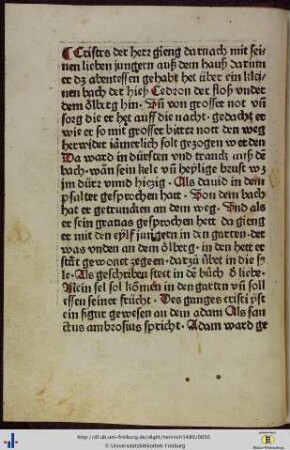 Cristus der herr gieng darnach mit sei-
nen lieben jungern auß dem hauß darinn
er dz abentessen gehabt het über ein klei-
nen bach der hieß Cedron der floß vnder
dem ölberg hin · Vn̄ von grosser not vn̄
sorg die er het auff die nacht · gedacht er
wie er so mit grosser bitter nott den weg
herwider iämerlich solt gezogen werden
Da ward in dürsten vnd tranck auß dē
bach · wān sein kele vn̄ heylige brust wz
im dürr vnnd hiczig · Als dauid in dem
psalter gesprochen hatt · Von dem bach
hat er getruncken an dem weg · Vnd als
er sein gracias gesprochen hett da gieng
er mit den eylf jungern in den garten · der
was vnden an dem ölberg · in den hett er
stät gewonet zegeen · dar zů übet in die se-
le · Als geschriben stet in dē bůch d̕ liebe ·
Mein sel sol kōmen in den garten vn̄ soll
essen seiner frücht · Des ganges cristi yst
ein figur gewesen an dem adam Als san-
ctus ambrosius spricht · Adam ward ge
http://dl.ub.uni-freiburg.de/diglit/heinrich1480/0050
© Universitätsbibliothek Freiburg